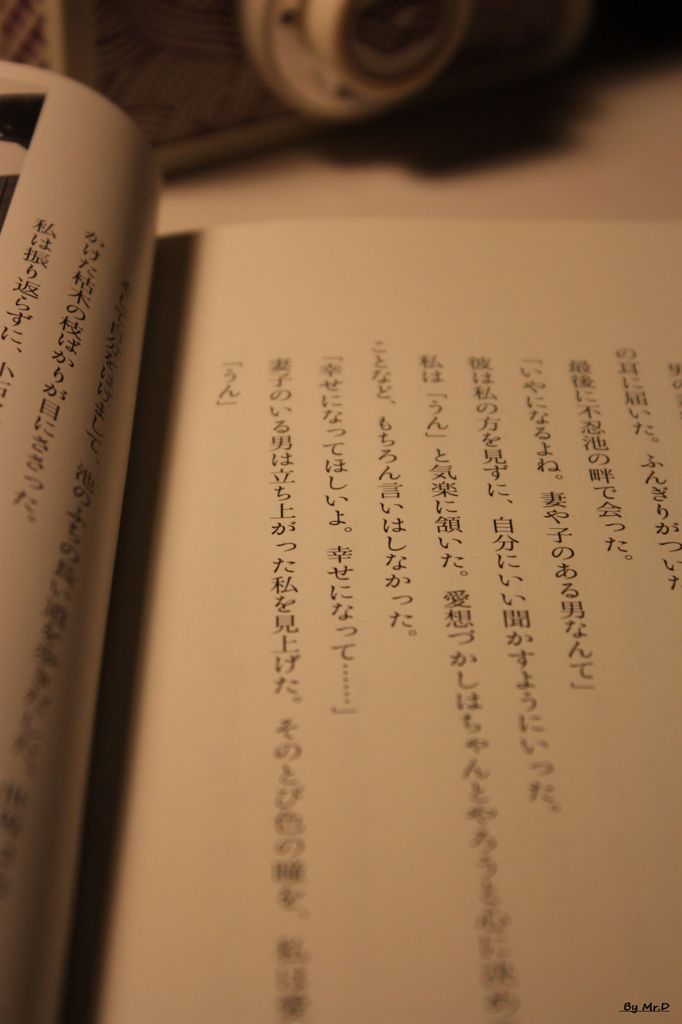 の耳に届いた。ふんぎりがついた
最後に不忍池の畔で会った。
「いやになるよね。妻や子のある男なんて」
彼は私の方を見ずに、自分にいい聞かすようにいった。
私は「うん」と気楽に頷いた。愛想づかしはちゃんとやろうと心に決め
ことなど、もちろん言いはしなかった。
「幸せになってほしいよ。幸せになって……」
妻子のいる男は立ち上がった私を見上げた。そのとび色の瞳を、私は愛
「うん」
池のふちの長い道を歩きだした。
かけた枯木の枝ばかりが目にささった。
私は振り返らずに、小石
By Mr.D